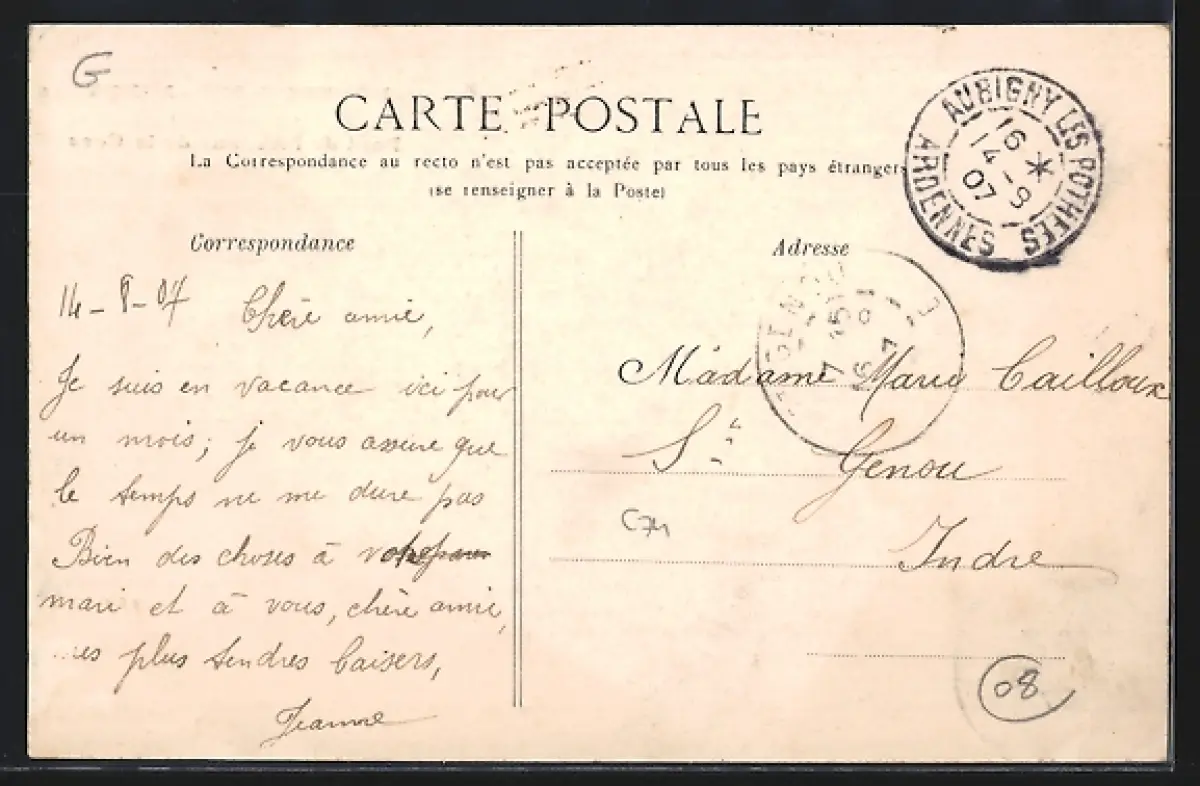 G
CARTE POSTALE
La Correspondance au recto n'est pas acceptée par tous les pays étrangers
(se renseigner à la Poste)
AUBIGNY LES POTHEES
16 *
14 - 8
07
ARDENNES
Correspondance
Adresse
14-8-07 Chère amie,
Je suis en vacance ici pour
un mois; je vous assure que
le temps ne me dure pas
Bien des choses à votre
mari et à vous, chère amie,
mes plus tendres baisers,
Jeanne
Madame Marie Cailloux
St Genou
Indre
08